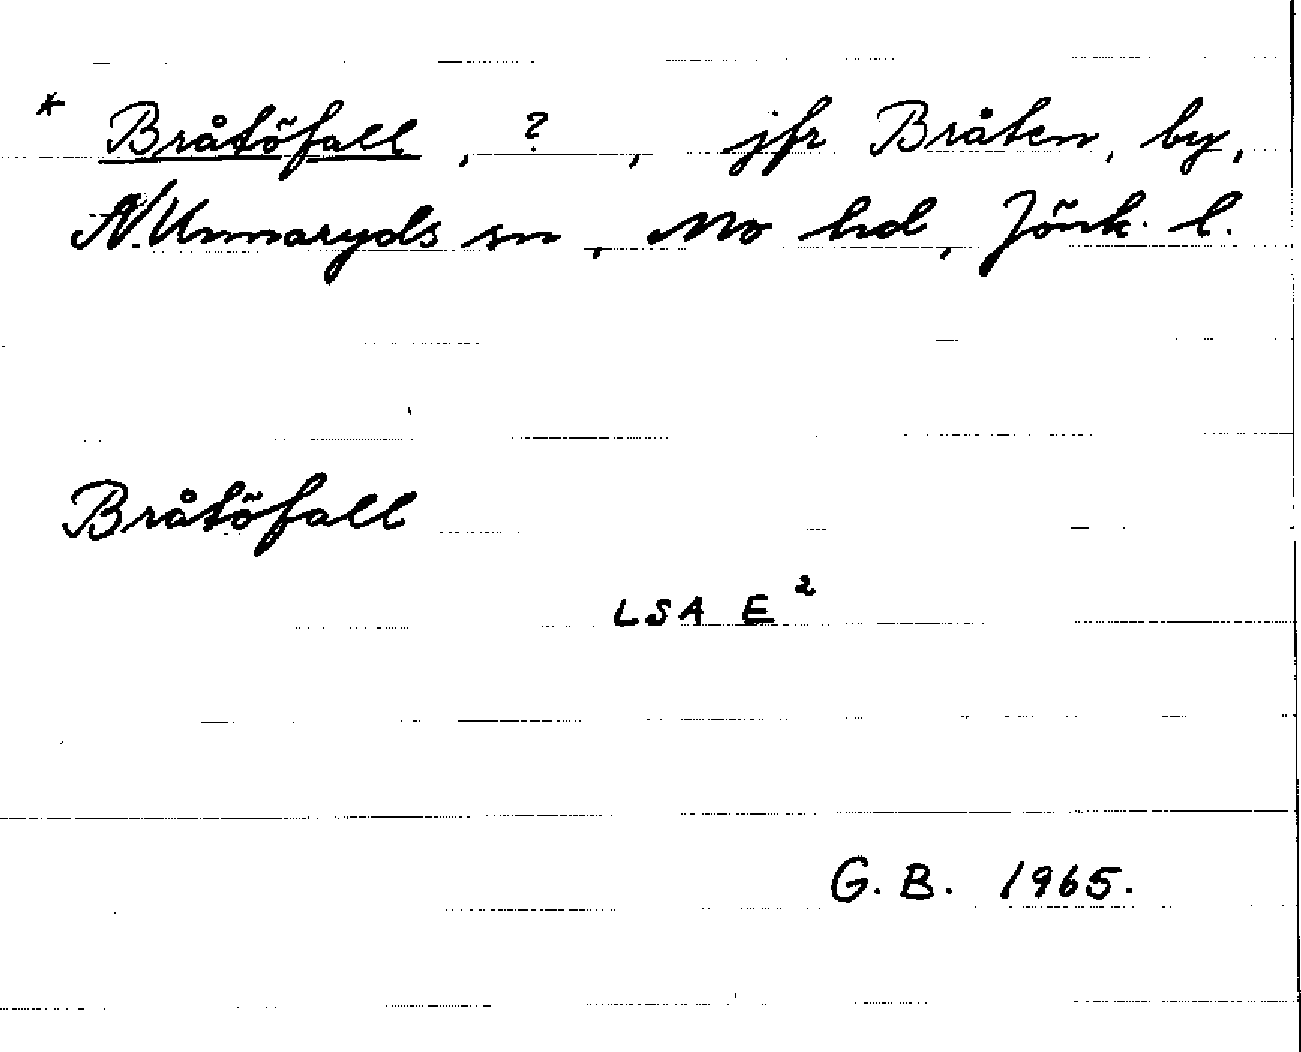 * Bråtöfall, ?, jfr Bråten, by,
N. Unnaryds sn, Mo hd, Jönk. l.
Bråtöfall
LSA E²
G. B. 1965.